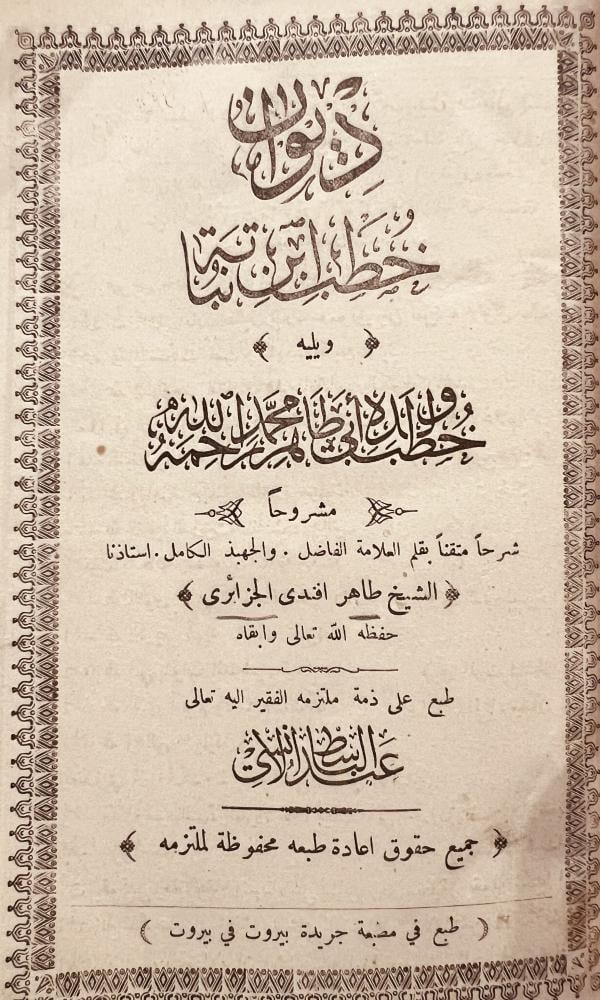 ديوان
خطب ابن نباتة
﴿ ويليه ﴾
خطب ولده أبي طاهر محمد رحمه الله
مشروحاً
شرحاً متقناً بقلم العلامة الفاضل . والجهبذ الكامل . استاذنا
﴿ الشيخ طاهر افندى الجزائرى ﴾
حفظه الله تعالى وابقاه
طبع على ذمة ملتزمه الفقير اليه تعالى
عبد الباسط الانسي
﴿ جميع حقوق اعادة طبعه محفوظة لملتزمه ﴾
( طبع في مطبعة جريدة بيروت في بيروت )